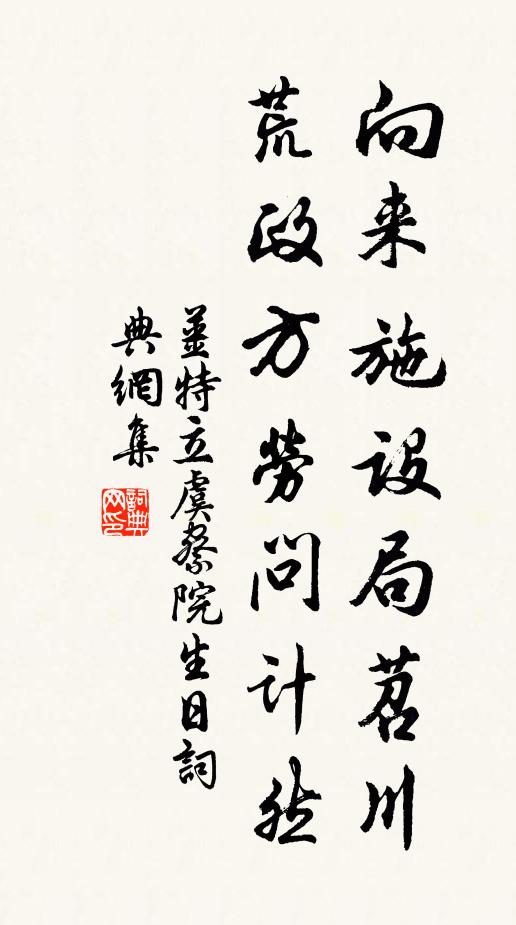 向来施设局苕川
荒政方劳問计然
薑特立虞察院生日詞
典網集
詞典网印